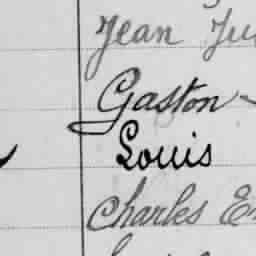 Jean
Gaston
Louis
Charles